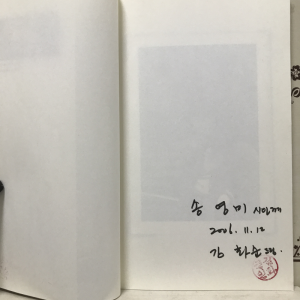 송 영 미 시인께
2006. 11. 12
김 화 순 드림.